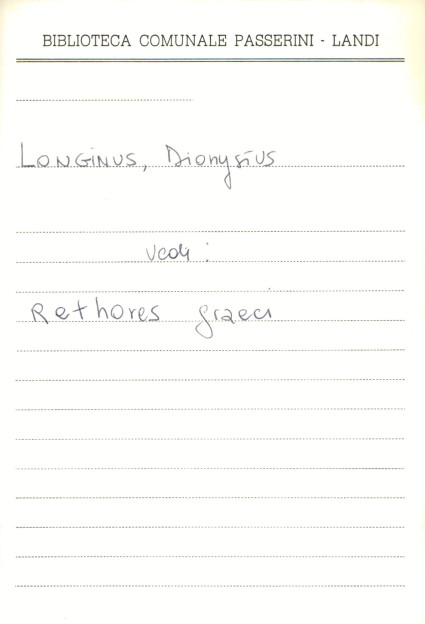 BIBLIOTECA COMUNALE PASSERINI - LANDI
LONGINUS, Dionysius
vedi :
Rethores graeci